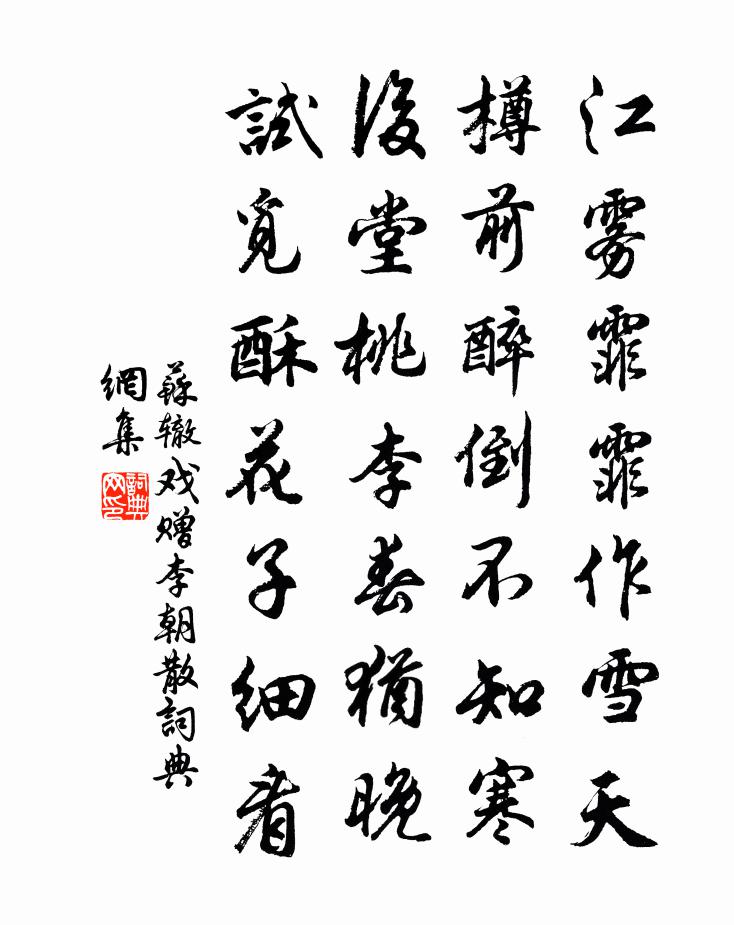 江雾霏霏作雪天
樽前醉倒不知寒
後堂桃李春猶晚
試覓酥花子細看
蘇辙戏赠李朝散詞典
網集
詞典网印